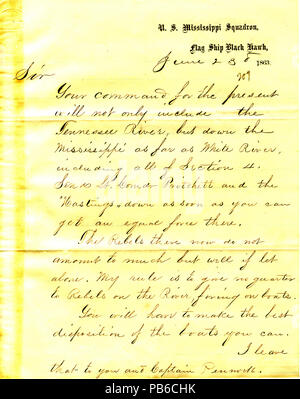 U. S. Mississippi Squadron,
Flag Ship Black Hawk,
June 23d 1863.
Sir
Your command for the present
will not only include the
Tennessee River, but down the
Mississippi as far as White River,
including all of Section 4.
Send Lt. Comdr Pritchett and the
"Hastings" down as soon as you can
get an equal force there.
The Rebels there now do not
amount to much but will if let
alone. My rule is to give no quarter
to Rebels on the River, firing on boats.
You will have to make the best
disposition of the boats you can.
I leave
that to you and Captain Pennock.
alamy
Image ID: PB6CHK
www.alamy.com